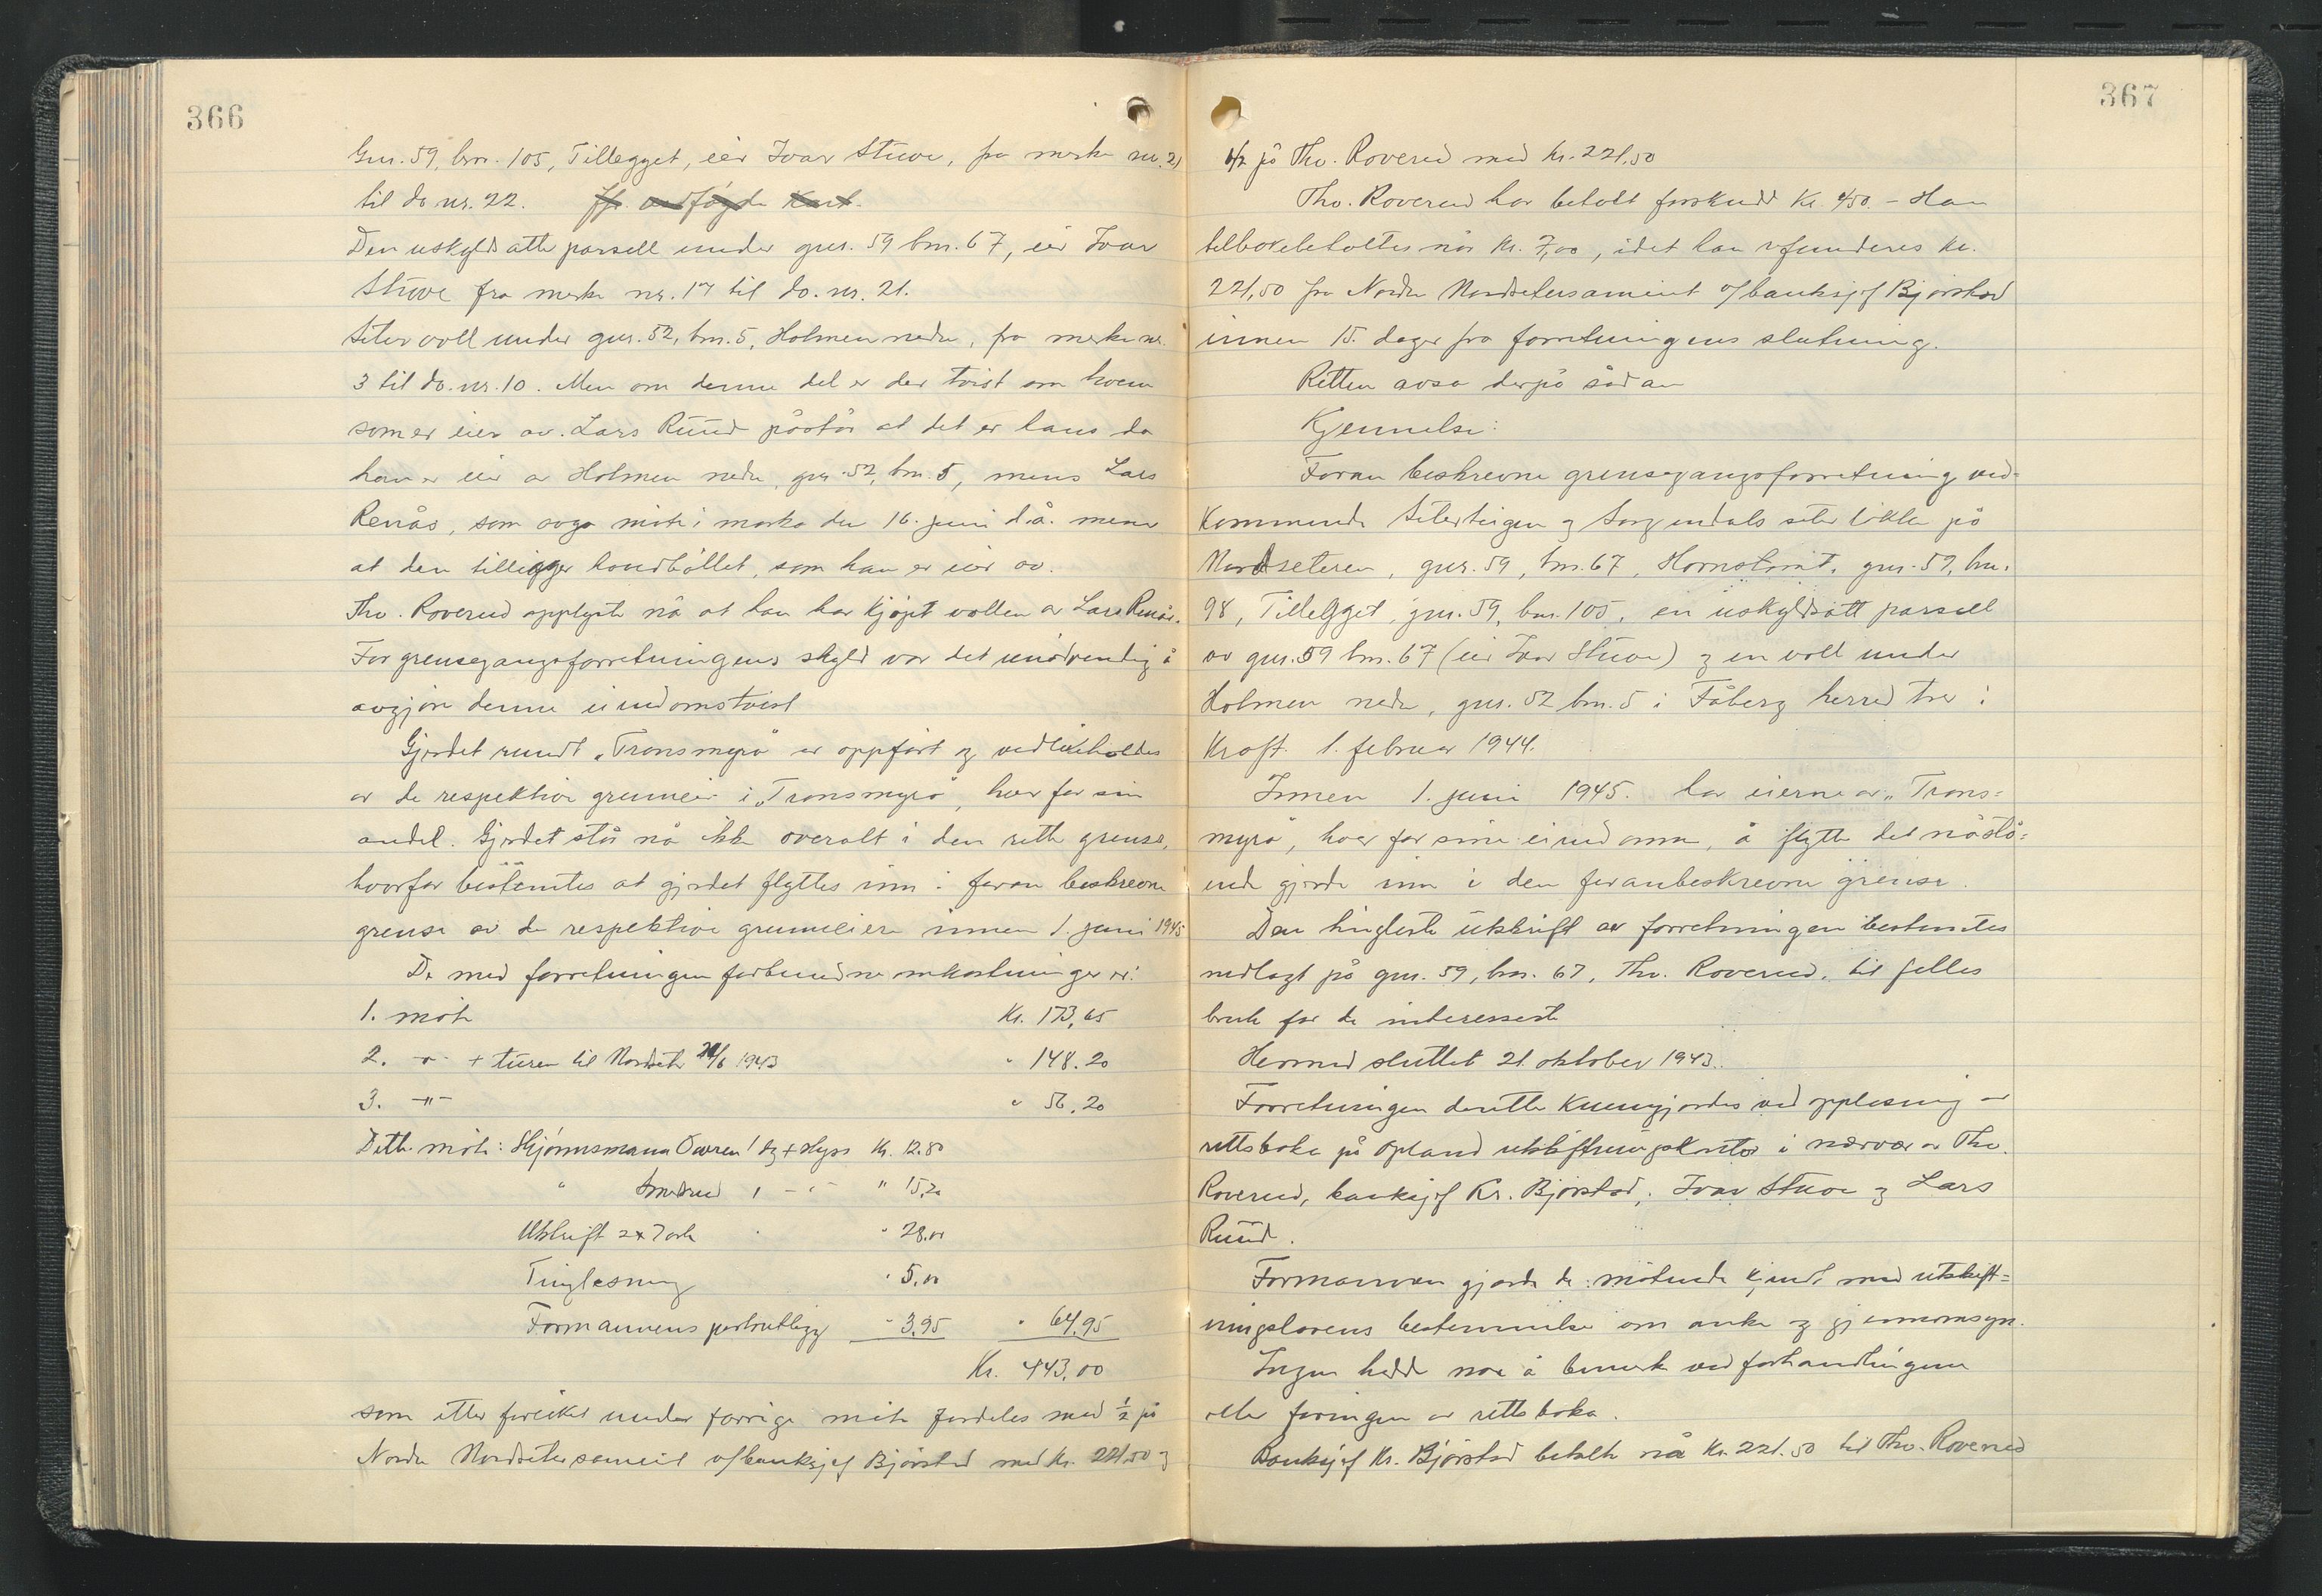 366
Gnr. 59, brn. 105, Tillegget, eier Ivar Stuve, fra merke nr. 21
til do nr. 22. Jfr. vedføyde Kart.
Den uskyldsatte parsell under gnr. 59 bnr. 67, eier Ivar
Stuve fra merke nr. 17 til do. nr. 21.
Setervoll under gnr. 52, bnr. 5, Holmen nedre, fra merke nr.
3 til do. nr. 10. Men om denne del er der tvist om hvem
som er eier av. Lars Ruud påstår at det er hans da
han er eier av Holmen nedre, gnr. 52, bnr. 5, mens Lars
Renås, som avga møte i marka den 16. juni d.å. mener
at den tilligger Lundbället, som han er eier av.
Thv. Roverud opplyste nå at han har kjøpt vollen av Lars Renås.
For grensegangsforretningens skyld var det unødvendig å
avgjøre denne eiendomstvist
Gjerdet rundt "Transmyra" er oppført og vedlikeholdes
av de respektive grunneier i "Transmyra", hver for sin
andel. Gjerdet står nå ikke overalt i den rette grense,
hvorfor bestemtes at gjerdet flyttes inn i foran beskrevne
grense av de respektive grunneiere innen 1. juni 1945
De med forretningen forbundne omkostninger er:
1. møte Kr. 173,65
2. -"- + turen til Nordseter 21/6 1943 " 148.20
3. -"- " 56,20
Dette møte: Skjønnsmann Owren 1 dg + skyss Kr. 12.80
" Smedsrud 1 - " - " 15,20
Utskrift 2x7 ark " 28.00
Tinglesning " 5,00
Formannens portoutlegg " 3,95 " 64,95
Kr. 443,00
som etter foreiket under forrige møte fordeles med 1/2 på
Nordre Nordseter sameie v/banksjef Bjørstad med Kr. 221.50 og
367
1/2 på Thv. Roverud med Kr. 221.50
Thv. Roverud har betalt forskudd Kr. 450.- Han
tilbakebetaltes nå Kr. 7,00, idet han refunderes Kr.
221,50 fra Nordre Nordsetersameiet v/banksjef Bjørstad
innen 15. dager fra forretningens slutning.
Retten avsa derpå sådan
Kjennelse:
Foran beskrevne grensegangsforretning ved-
kommende Seterteigen og Sorgendals seter løkke på
Nordseteren, gnr. 59, bnr. 67, Hornstvint, gnr. 59, bnr.
98, Tillegget, gnr. 59, bnr. 105, en uskyldsatt parsell
av gnr. 59 bnr. 67 (eier Ivar Stuve) og en voll under
Holmen nedre, gnr. 52 bnr. 5 i Fåberg herred trer i
kraft 1. februar 1944.
Innen 1. juni 1945. har eierne av "Trans-
myra", hver for sine eiendomme, å flytte det nåstå-
ende gjerde inn i den foranbeskrevne grense.
Den tingleste utskrift av forretningen bestemtes
nedlagt på gnr. 59, bnr. 67, Thv. Roverud, til felles
bruk for de interesserte
Hermed sluttet 21. oktober 1943.
Forretningen deretter kunngjordes ved opplesning av
rettsboka på Opland utskiftningskontor i nærvær av Thv.
Roverud, banksjef Kr. Bjørstad, Ivar Stuve og Lars
Ruud.
Formannen gjorde de møtende kjendt med utskift-
ningslovens bestemmelse om anke og gjennomsyn.
Ingen hadde noe å bemerke ved forhandlingene
eller føringen av rettsboka.
Banksjef Kr. Bjørstad betalte nå Kr. 221.50 til Thv. Roverud